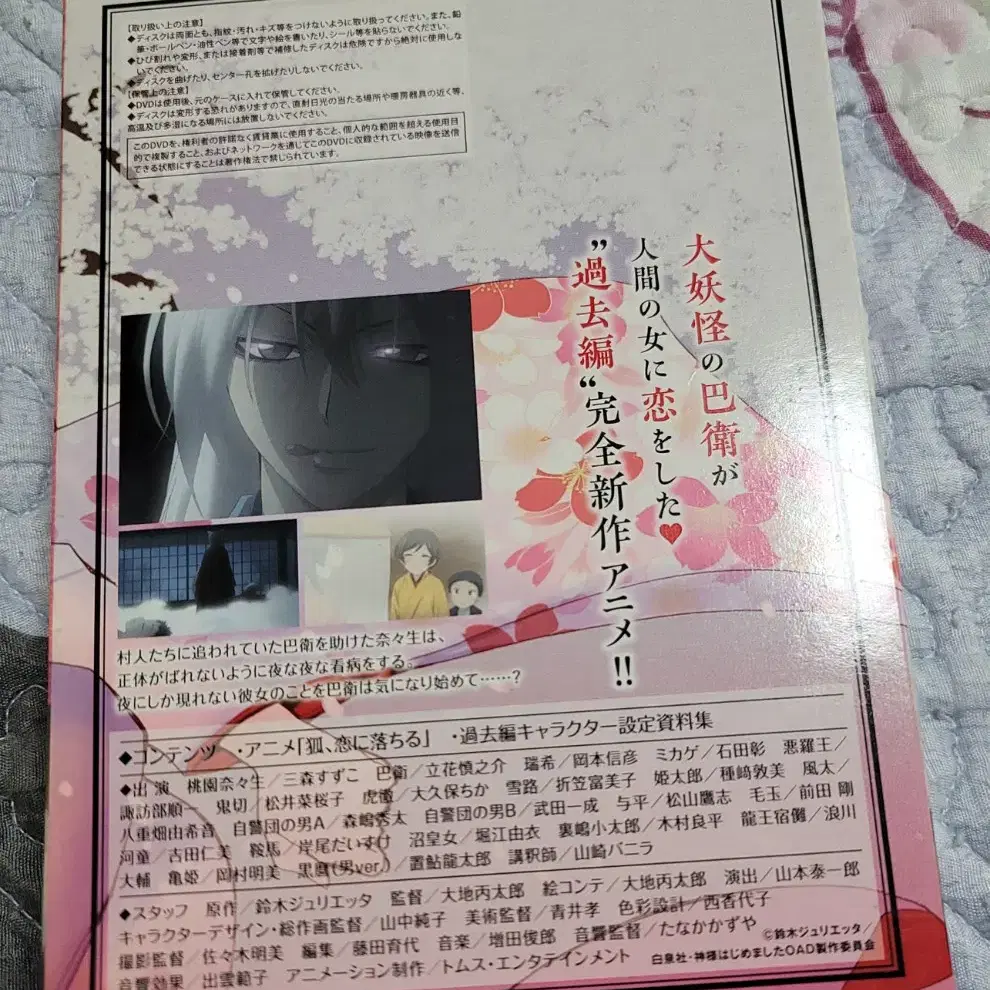 【取り扱い上の注意】
◆ディスクは両面とも、指紋・汚れ・キズ等をつけないように取り扱ってください。また、鉛
筆・ボールペン・油性ペン等で文字や絵を書いたり、シール等を貼らないでください。
◆ひび割れや変形、または接着剤等で補修したディスクは危険ですから絶対に使用しな
いでください。
◆ディスクを曲げたり、センター孔を拡げたりしないでください。
【保管上の注意】
◆DVDは使用後、元のケースに入れて保管してください。
◆ディスクは変形する恐れがありますので、直射日光の当たる場所や暖房器具の近く等、
高温及び多湿になる場所には放置しないでください。
このDVDを、権利者の許諾なく賃貸業に使用すること、個人的な範囲を超える使用目
的で複製すること、およびネットワークを通じてこのDVDに収録されている映像を送信
できる状態にすることは著作権法で禁じられています。
大妖怪の巴衛が
人間の女に恋をした♥
"過去編"完全新作アニメ!!
村人たちに追われていた巴衛を助けた奈々生は、
正体がばれないように夜な夜な看病をする。
夜にしか現れない彼女のことを巴衛は気になり始めて……?
◆コンテンツ ・アニメ「狐、恋に落ちる」 ・過去編キャラクター設定資料集
◆出演 桃園奈々生/三森すずこ 巴衛/立花慎之介 瑞希/岡本信彦 ミカゲ/石田彰 悪羅王/
諏訪部順一 鬼切/松井菜桜子 虎徹/大久保ちか 雪路/折笠富美子 姫太郎/種﨑敦美 風太/
八重畑由希音 自警団の男A/森嶋秀太 自警団の男B/武田一成 与平/松山鷹志 毛玉/前田 剛
河童/吉田仁美 鞍馬/岸尾だいすけ 沼皇女/堀江由衣 裏嶋小太郎/木村良平 龍王宿儺/浪川
大輔 亀姫/岡村明美 黒麿(男ver.)/置鮎龍太郎 講釈師/山崎バニラ
◆スタッフ 原作/鈴木ジュリエッタ 監督/大地丙太郎 絵コンテ/大地丙太郎 演出/山本泰一郎
キャラクターデザイン・総作画監督/山中純子 美術監督/青井孝 色彩設計/西香代子
撮影監督/佐々木明美 編集/藤田育代 音楽/増田俊郎 音響監督/たなかかずや
音響効果/出雲範子 アニメーション制作/トムス・エンタテインメント
©鈴木ジュリエッタ/
白泉社・神様はじめましたOAD製作委員会